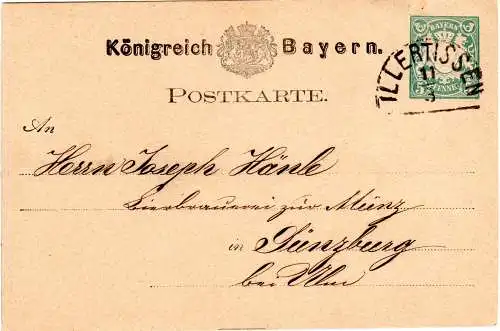 Königreich Bayern.
BAYERN
5 PFENNIG 5
ILLERTISSEN
11
3
POSTKARTE.
An
Herrn Joseph Hänle
Bierbrauerei zur Münz
in Günzburg
bei Ulm